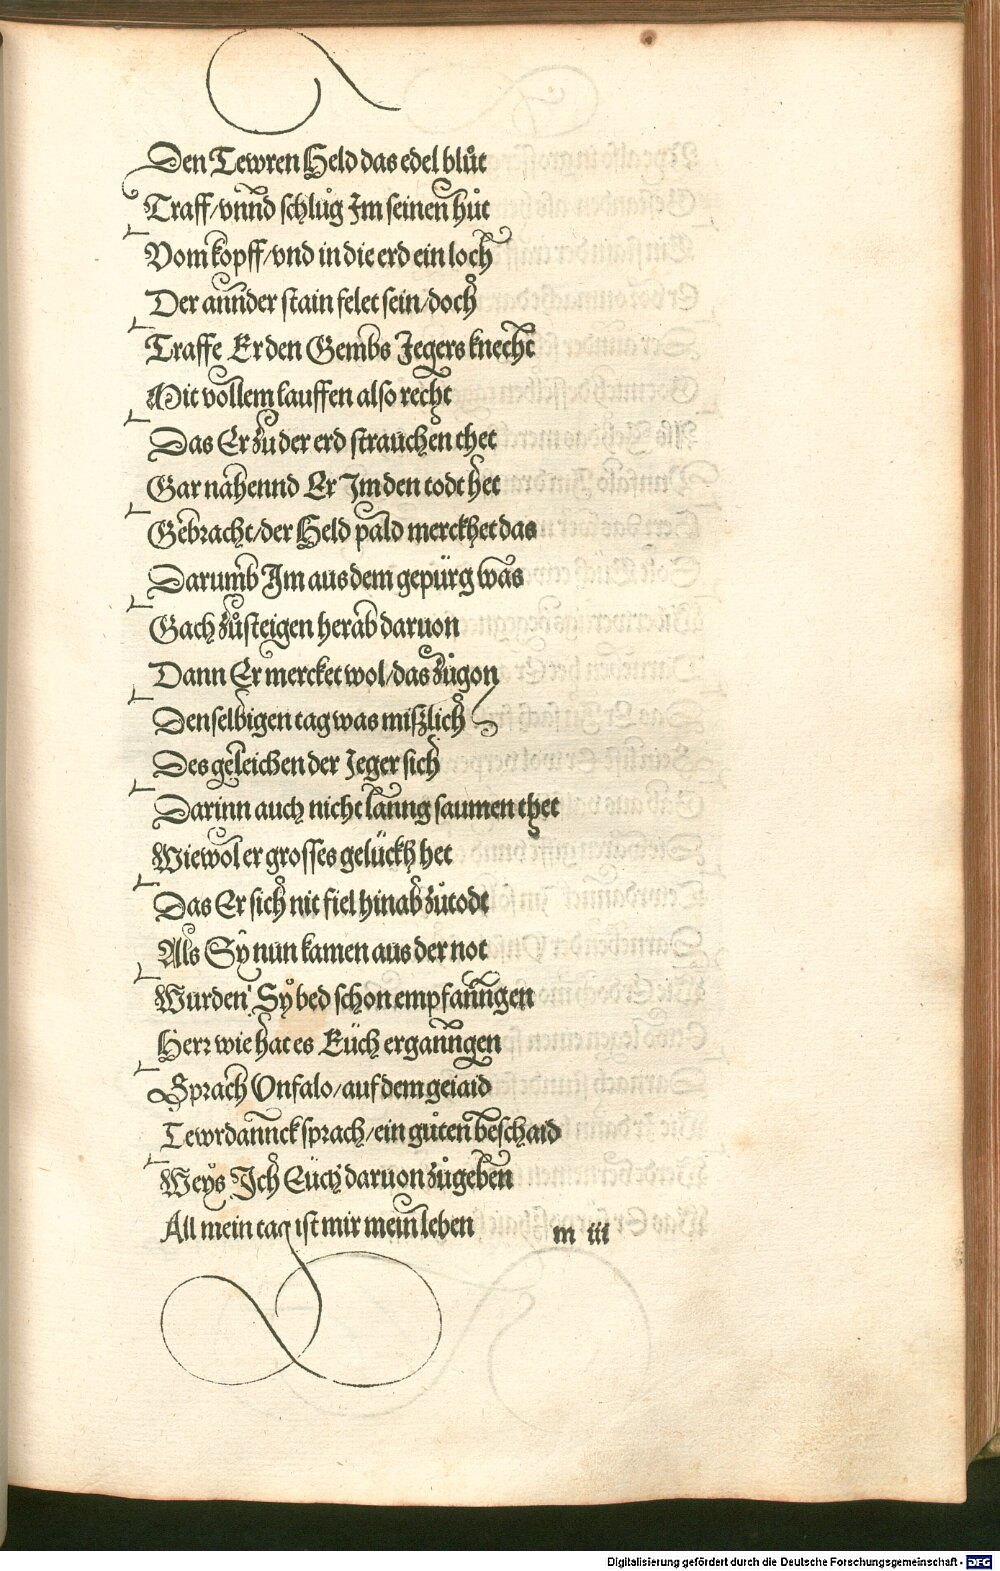 Den Tewren Held das edel blůt
Traff/vnnd schlůg Im seinen hůt
Vom kopff/vnd in die erd ein loch
Der annder stain felet sein/doch
Traffe Er den Gembs Jegers knecht
Mit vollem lauffen also recht
Das Er zu der erd strauchen thet
Gar nahennd Er Im den todt het
Gebracht/der Held pald merckhet das
Darumb Im aus dem gepürg was
Gach zůsteigen herab daruon
Dann Er mercket wol/das zůgon
Denselbigen tag was mißlich
Des geleichen der Jeger sich
Darinn auch nicht lanng saumen thet
Wiewol er grosses gelückh het
Das Er sich nit fiel hinab zůtodt
Als Sy nun kamen aus der not
Wurden Sy bed schon empfanngen
Herr wie hat es Eüch erganngen
Sprach Vnfalo/auf dem geiaid
Tewrdannck sprach/ein gůten beschaid
Weys Ich Eüch daruon zůgeben
All mein tag ist mir mein leben
m iii
Digitalisierung gefördert durch die Deutsche Forschungsgemeinschaft - DFG